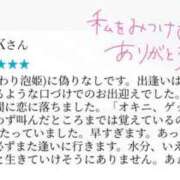 私をみつけ
ありが
さん
★★★
わり泡姫)に偽りなしです。出逢いは
るような口づけでのお出迎えでした。
間に恋に落ちました。「オキニ、ゲッ
わず叫んだところまでは覚えている
たっていました。早すぎます。あっ
必ずまた逢いに行きます。水分、いえ
と生きていけそうにありません。あ